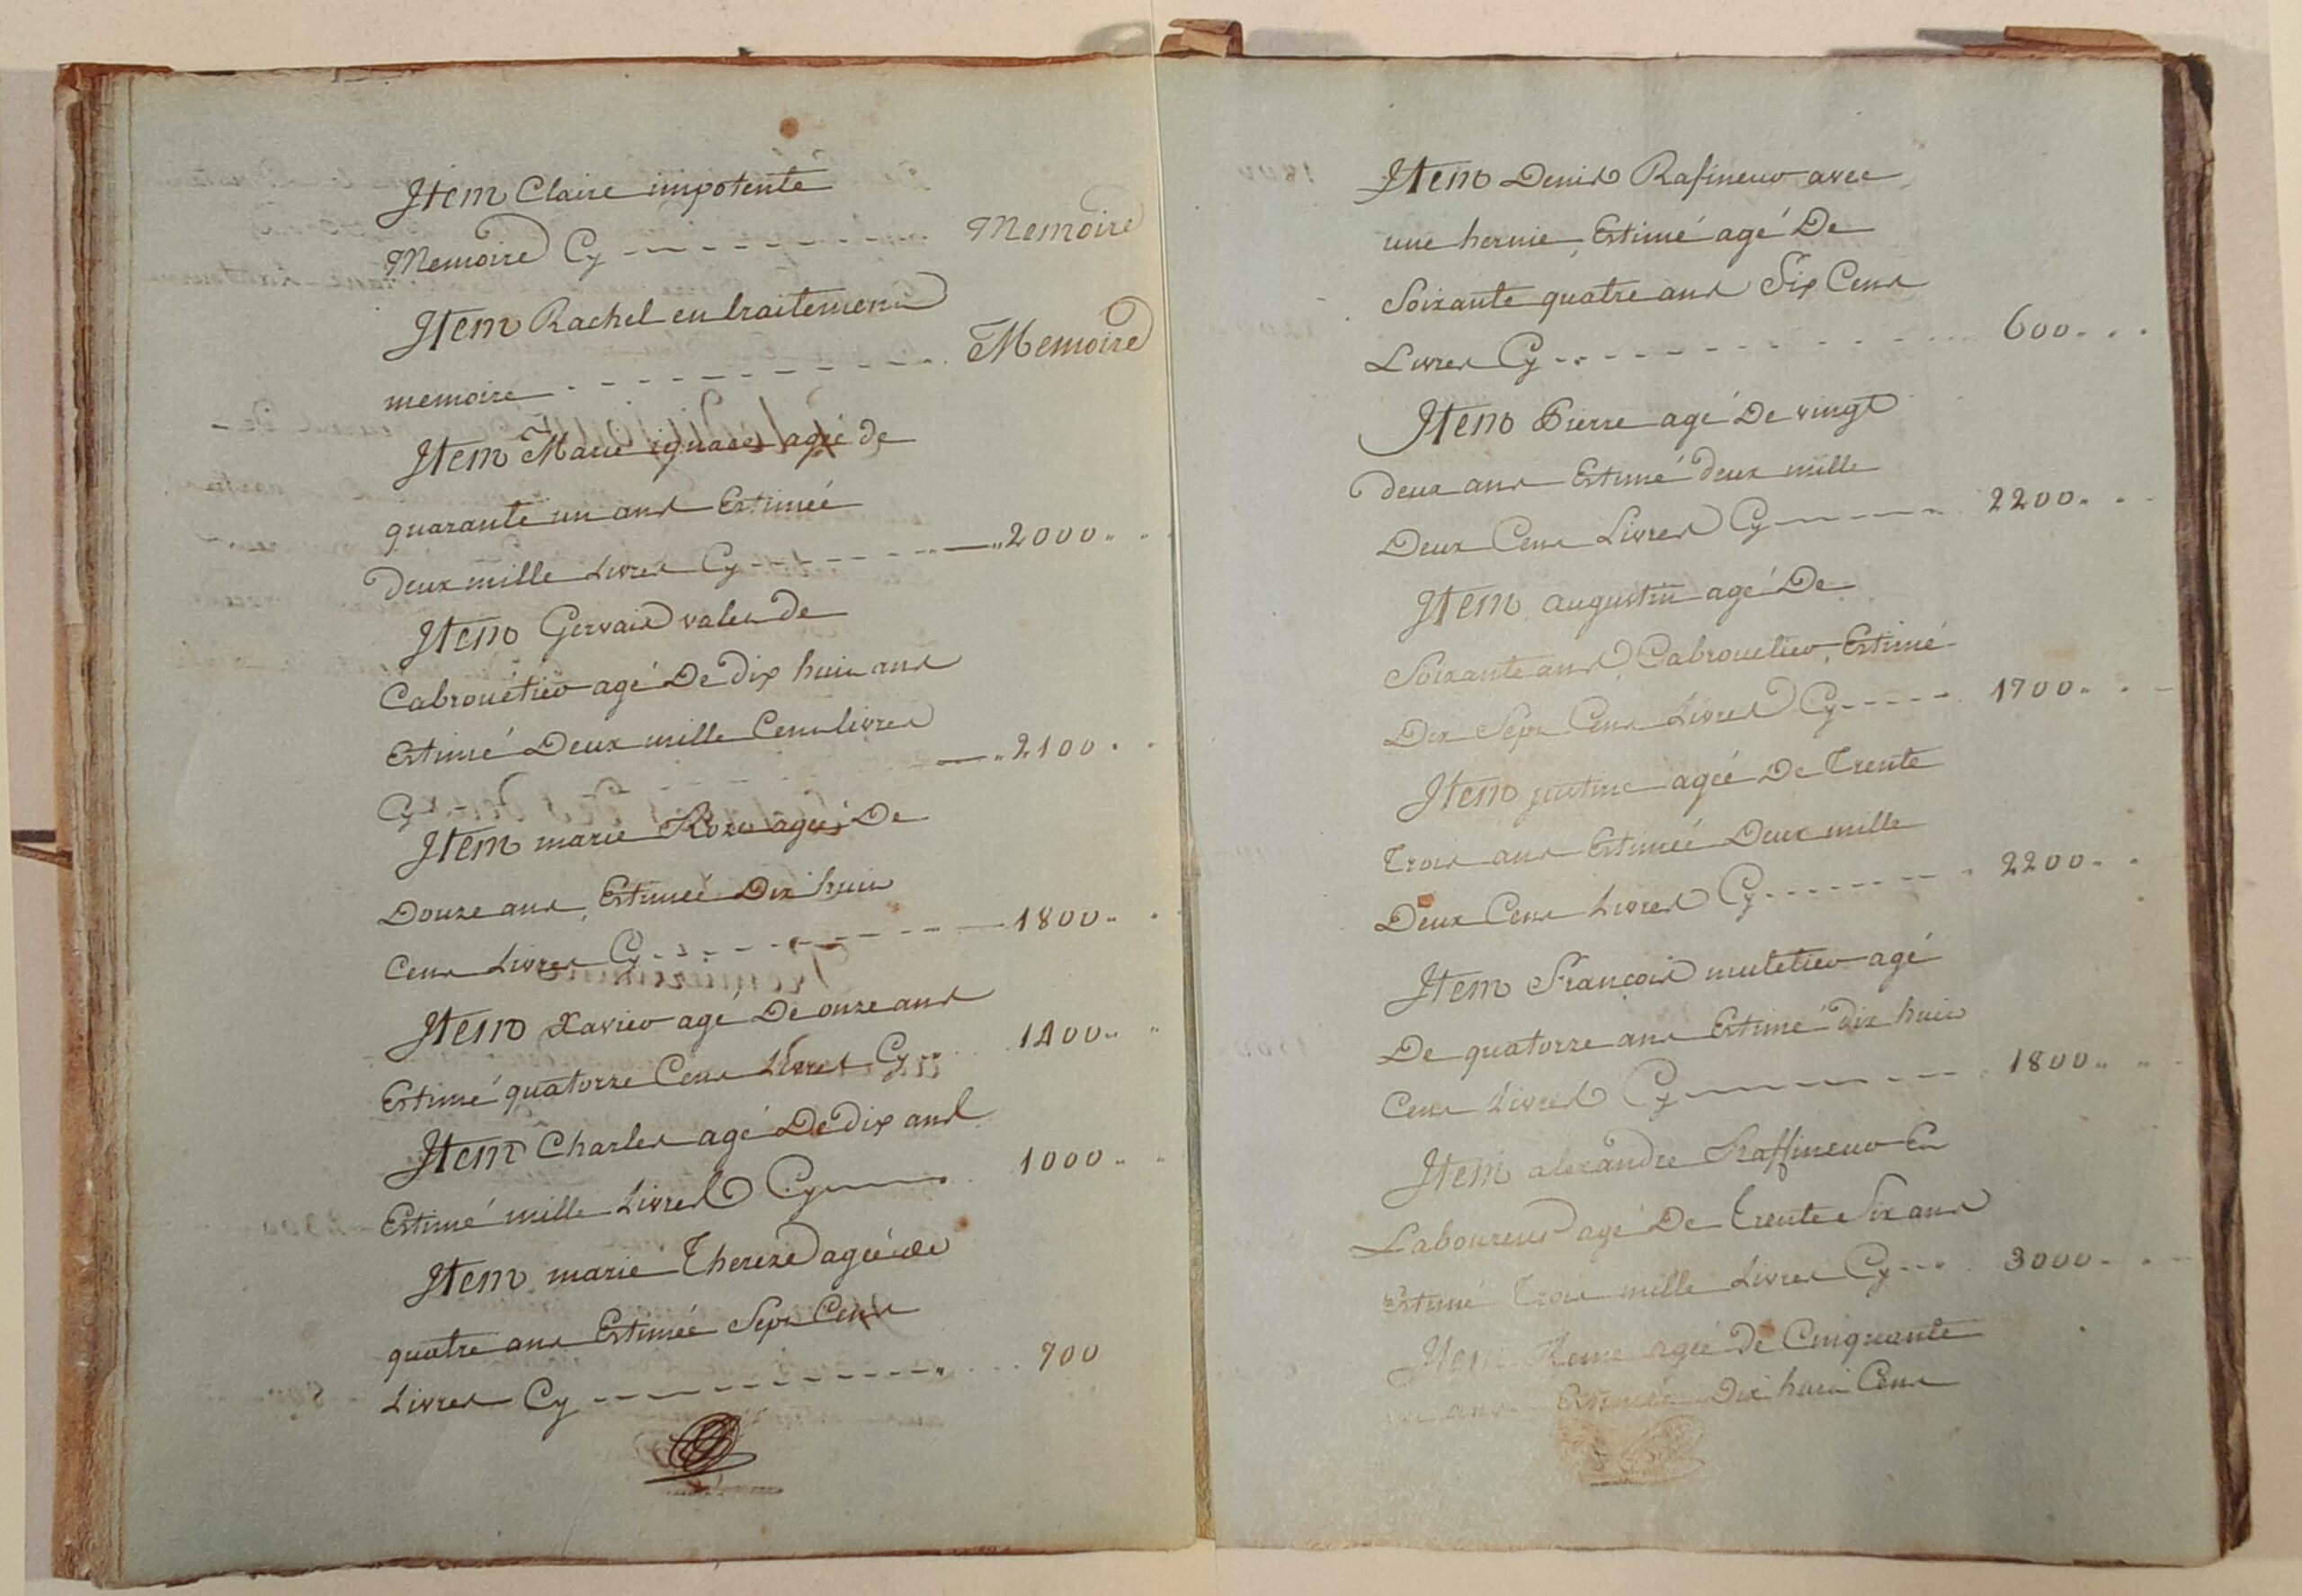 Item Claire impotente
Memoire Cy - - - - - - - - Memoire
Item Rachel en traitement
memoire - - - - - - - - Memoire
Item Marie ignace agée de
quarante un ans Estimée
deux mille Livres Cy - - - - - - 2000 " "
Item Gervais valet de
Cabrouétier agé De dix huit ans
Estimé Deux mille Cent livres
Cy - - - 2100 " "
Item marie Roze agée De
Douze ans, Estimée Dix huit
Cens Livres Cy - - - - - - - - 1800 " "
Item Xavier agé De onze ans
Estimé quatorze Cens Livres Cy - - 1400 " "
Item Charles agé De dix ans
Estimé mille Livres Cy - - - 1000 " "
Item marie Thereze agée de
quatre ans Estimée Sept Cens
Livres Cy - - - - - - - - - 700
Item Denis Rafineur avec
une hernie, Estimé agé De
Soixante quatre ans Six Cens
Livres Cy - - - - - - - - - 600 " "
Item Pierre agé De vingt
deux ans Estimé deux mille
Deux Cens Livres Cy - - - - - 2200 " "
Item augustin agé De
Soixante ans, Cabrouetier, Estimé
Dix Sept Cens Livres Cy - - - - 1700 " "
Item justine agée De Trente
Trois ans Estimée Deux mille
Deux Cens Livres Cy - - - - - - 2200 " "
Item François muletier agé
De quatorze ans Estimé dix huit
Cens Livres Cy - - - - - - - 1800 " "
Item alexandre Raffineur Et
Laboureur agé De Trente Six ans
Estimé Trois mille Livres Cy - - - 3000 " "
Item agée de Cinquante
ans Estimée Dix huit Cens